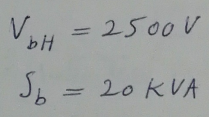 V_bH = 2500 V
S_b = 20 KVA